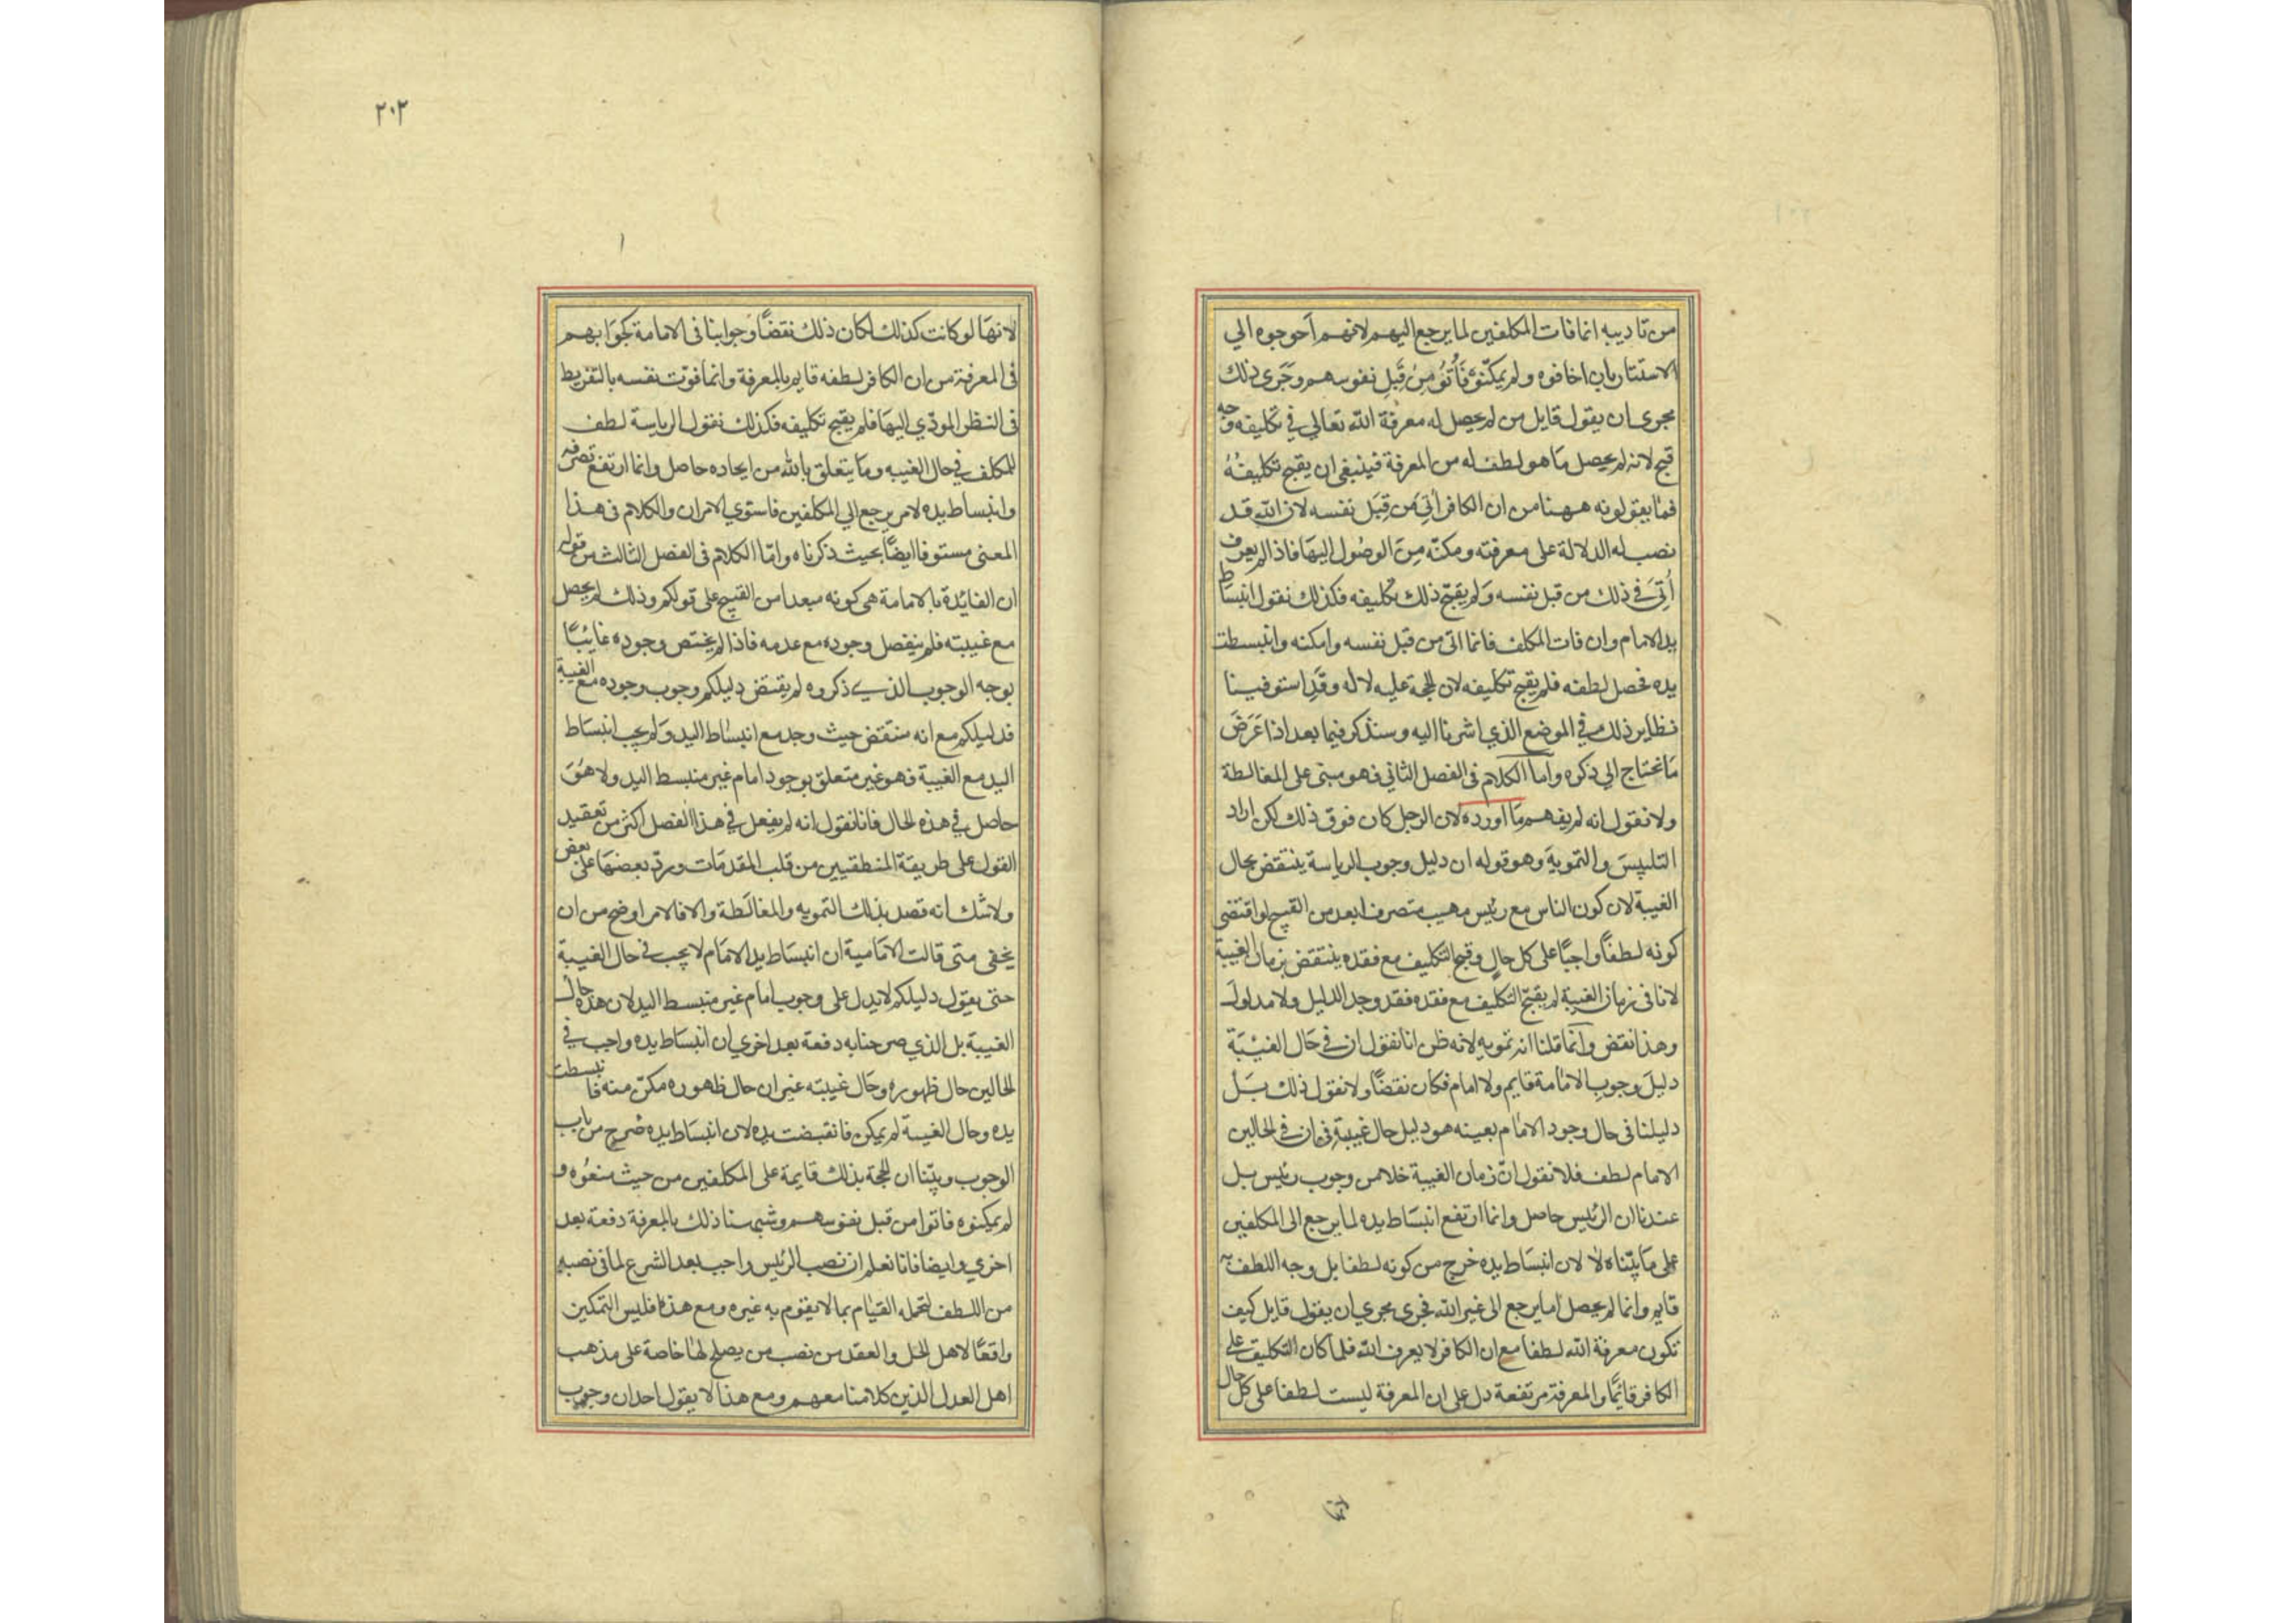 من تاديبه انما فات المكلفين لما يرجع اليهم لانهم أحوجوه الي
الاستتار بان اخافوه ولم يمكّنوه فَأُتُوا مِن قِبَلِ نفوسهم وجَرى ذلك
مجرى ان يقول قايل من لم يحصل له معرفة الله تعالي في تكليفه وجه
قبح لانه لم يحصل مَا هو لطف له من المعرفة فينبغي ان يقبح تكليفهُ
فما يقولونه ههنا من ان الكافر أُتِيَ مَن قِبَل نفسه لان الله قد
نصب له الدلالة على معرفته ومكنّه مِنَ الوصُول اليهَا فاذا لم يعرف
أُتِيَ في ذلك من قبل نفسه وَلم يقبح ذلك تكليفه فكذلك نقول انبساط
يد الامام وان فات المكلف فانما اتى من قبل نفسه وامكنه وانبسطت
يده فحصل لطفه فلم يقبح تكليفه لان الحجة عليه لا له وقَدِ استوفينا
نظاير ذلك في الموضع الذي اشرنا اليه وسنذكر فيما بعد اذا عَرَضَ
مَا نحتاج الي ذكره وأما الكلام فى الفصل الثاني فهو مبنى على المغالطة
ولا نقول انه لم يفهم مَا اورده لان الرجل كان فوق ذلك لكن اراد
التلبيسَ والتمويهَ وهو قوله ان دليل وجوب الرياسة ينتقض بحال
الغيبة لان كون الناس مع رئيس مهيب متصرف ابعد من القبيح لو اقتضى
كونه لطفًا واجبًا على كل حالٍ وقبح التكليف مع فقده ينتقض بزمان الغيبة
لانا في زمان الغيبة لم يقبح التكليف مع فقده فقد وجد الدليل ولا مدلول
وهذا نقض وانَّما قلنا انه تمويه لانه ظن انا نقول ان في حَال الغيْبَة
دليلَ وجوبِ الامَامة قايم ولا امام فكان نقضًا ولا نقول ذلك بَلْ
دليلنا فى حال وجود الامَام بعينه هو دليل حال غيبته فى ان في الحالين
الامام لطف فلا نقول انّ زمان الغيبة خلا من وجوب رئيس بل
عندنا ان الرئيس حاصل وانما ارتفع انبسَاط يده لما يرجع الى المكلفين
على مَا بيّناه لا لان انبسَاط يده خرج من كونه لطفا بل وجه اللطف به
قايم وانما لم يحصل لما يرجع الى غير الله فجرى مجري ان يقول قايل كيف
تكون معرفة الله لطفا مع ان الكافر لا يعرف الله فلما كان التكليف على
الكافر قائمًا والمعرفة مرتفعة دل على ان المعرفة ليست لطفا على كل حال
٢٠٢
لانهَا لو كانت كذلك لكان ذلك نقضًا وجوابنا فى الامامة كجوَابهم
فى المعرفة من ان الكافر لطفه قايم بالمعرفة وانما فوّت نفسه بالتفريط
فى النظر المودّي اليهَا فلم يقبح تكليفه فكذلك نقول الرياسة لطف
للمكلف في حال الغيبه ومَا يتعلق بالله من ايجاده حاصل وانما ارتفع تصرفه
وانبساط يده لامر يرجع الي المكلفين فاستوي الامران والكلام فى هذا
المعنى مستوفا ايضًا بحيث ذكرناه وامّا الكلام فى الفصل الثالث من قوله
ان الفائدة بالامامة هى كونه مبعدا من القبيح على قولكم وذلك لم يحصل
مع غيبته فلم ينفصل وجوده مع عدمه فاذا لم يختص وجوده غائبًا
بوجه الوجوب الذي ذكروه لم يقتض دليلكم وجوب وجوده مع الغيبة
فدليلكم مع انه منتقض حيث وجد مع انبسَاط اليد وَلم يجب انبسَاط
اليد مع الغيبة فهو غير متعلق بوجود امام غير منبسط اليد ولا هَوَ
حاصل في هذه الحال فانا نقول انه لم يفعل في هذا الفصل اكثر من تعقيد
القول على طريقة المنطقيين من قلب المقدمَات ورد بعضهَا على بعض
ولا شك انه قصد بذلك التمويه والمغالَطة والا فالامر اوضح من ان
يخفى متى قالت الامَامية ان انبسَاط يد الامَام لا يجب في حال الغيبة
حتى يقول دليلكم لا يدل على وجوب امام غير منبسط اليد لان هذه حال
الغيبة بل الذي صرحنا به دفعة بعد اخري ان انبسَاط يده واجب في
الحالين حال ظهوره وحَال غيبته غير ان حال ظهوره مكّن منه فانبسطت
يده وحال الغيبة لم يمكن فانقبضت يده لان انبسَاط يده خرج من باب
الوجوب وبيّنا ان الحجة بذلك قايمة على المكلفين من حيث منعُوه و
لم يمكنوه فاتوا من قبل نفوسهم وشبهنا ذلك بالمعرفة دفعة بعد
اخري وايضا فانا نعلم ان نصب الرئيس واجب بعد الشرع لما فى نصبه
من اللطف لتحمله القيَام بما لا يقوم به غيره ومع هذا فليس التمكين
واقعًا لاهل الحل والعقد من نصب من يصلح لهَا خاصة على مذهب
اهل العدل الذين كلامنا معهم ومع هذا لا يقول احد ان وجوب